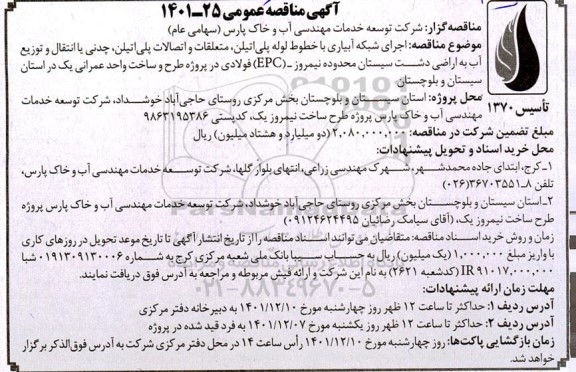 آگهی مناقصه عمومی ۲۵-۱۴۰۱
مناقصه‌گزار: شرکت توسعه خدمات مهندسی آب و خاک پارس (سهامی عام)
موضوع مناقصه: اجرای شبکه آبیاری با خطوط لوله پلی‌اتیلن، متعلقات و اتصالات پلی‌اتیلن، چدنی یا انتقال و توزیع
آب به اراضی دشت سیستان محدوده نیمروز -(EPC) فولادی در پروژه طرح و ساخت واحد عمرانی یک در استان
سیستان و بلوچستان
محل پروژه: استان سیستان و بلوچستان بخش مرکزی روستای حاجی‌آباد خوشداد، شرکت توسعه خدمات
مهندسی آب و خاک پارس پروژه طرح ساخت نیمروز یک، کدپستی ۹۸۶۳۱۹۵۳۸۶
تأسیس ۱۳۷۰
مبلغ تضمین شرکت در مناقصه: ۲,۰۸۰,۰۰۰,۰۰۰ (دو میلیارد و هشتاد میلیون) ریال
محل خرید اسناد و تحویل پیشنهادات:
۱-کرج، ابتدای جاده محمدشهر، شهرک مهندسی زراعی، انتهای بلوار گلها، شرکت توسعه خدمات مهندسی آب و خاک پارس،
تلفن ۸-۳۶۷۰۳۵۵۱(۰۲۶)
۲-استان سیستان و بلوچستان بخش مرکزی روستای حاجی‌آباد خوشداد، شرکت توسعه خدمات مهندسی آب و خاک پارس پروژه
طرح ساخت نیمروز یک، (آقای سیامک رضائیان ۰۹۱۲۴۶۲۴۴۹۵)
زمان و روش خرید اسناد مناقصه: متقاضیان می‌توانند اسناد مناقصه را از تاریخ انتشار آگهی تا تاریخ موعد تحویل در روزهای کاری
با واریز مبلغ ۱,۰۰۰,۰۰۰ (یک میلیون) ریال به حساب سیبا بانک ملی شعبه مرکزی کرج به شماره ۰۱۹۱۳۰۹۱۳۰۰۰۶ شبا
IR۹۱۰۱۷,۰۰۰,۰۰۰ (کدشعبه ۲۶۲۱) به نام این شرکت و ارائه فیش مربوطه و مراجعه به آدرس فوق دریافت نمایند.
۰۲۱-۸۸۳۴۹۶۷۰-۵
مهلت زمان ارائه پیشنهادات:
آدرس ردیف ۱: حداکثر تا ساعت ۱۲ ظهر روز چهارشنبه مورخ ۱۴۰۱/۱۲/۱۰ به دبیرخانه دفتر مرکزی
آدرس ردیف ۲: حداکثر تا ساعت ۱۲ ظهر روز یکشنبه مورخ ۱۴۰۱/۱۲/۰۷ به فرد قید شده در پروژه
زمان بازگشایی پاکت‌ها: روز چهارشنبه مورخ ۱۴۰۱/۱۲/۱۰ رأس ساعت ۱۴ در محل دفتر مرکزی شرکت به آدرس فوق‌الذکر برگزار
خواهد شد.